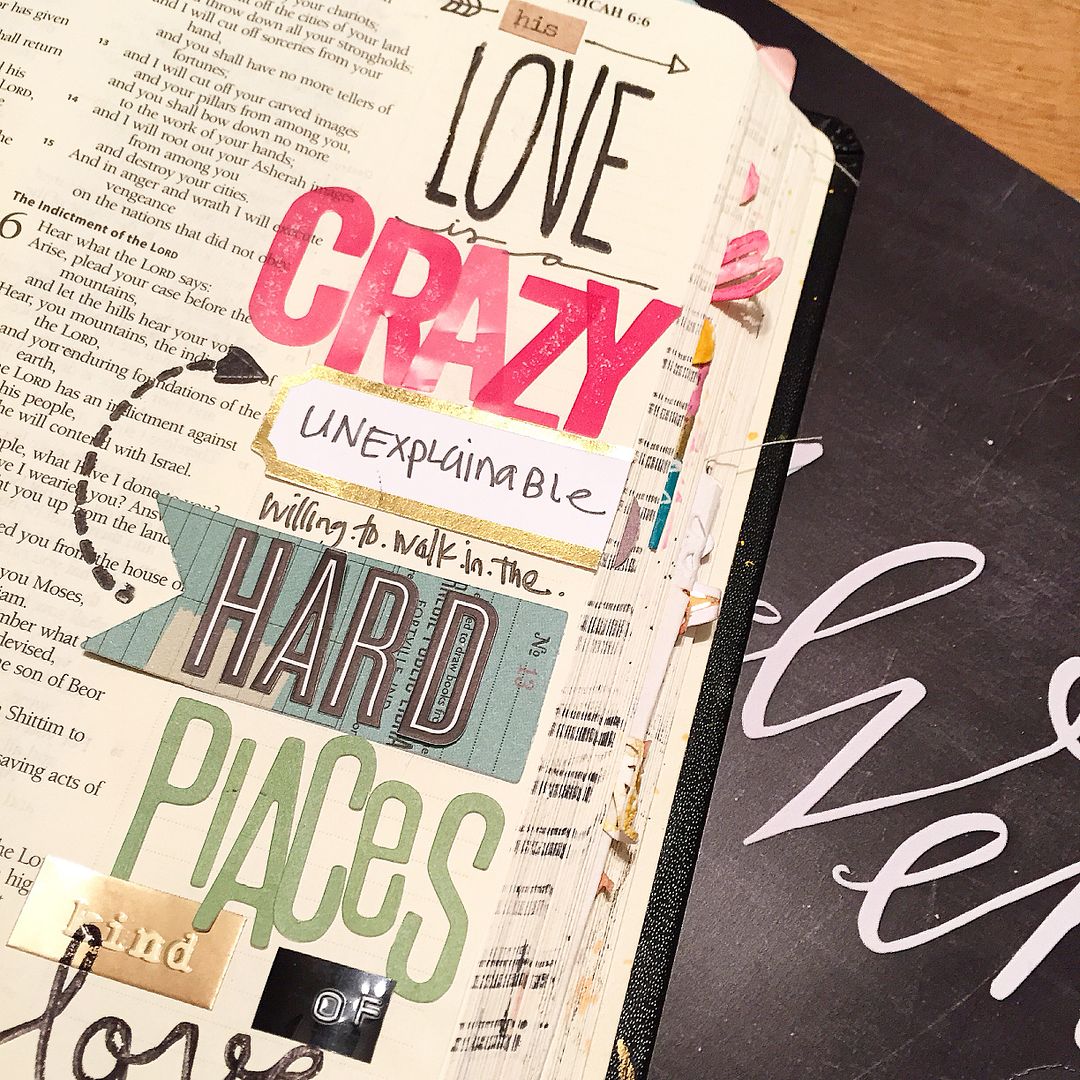 MICAH 6:6
his
LOVE
is a
CRAZY
UNEXPLAINABLE
willing to. walk. in. the.
HARD
No 13
PlACeS
kind
OF
love
has given
shall return
his
LORD,
the
your chariots;
and I will cut off the cities of your land
throw down all your strongholds;
and I will cut off sorceries from your
hand,
and you shall have no more tellers of
fortunes;
13 and I will cut off your carved images
and your pillars from among you,
and you shall bow down no more
to the work of your hands;
14 and I will root out your Asherah images
from among you
and destroy your cities.
15 And in anger and wrath I will execute
vengeance
on the nations that did not obey.
The Indictment of the Lord
6 Hear what the LORD says:
Arise, plead your case before the
mountains,
and let the hills hear your
Hear, you mountains, the
the LORD,
and you enduring foundations of the
earth,
the LORD has an indictment against
his people,
he will contend with Israel.
what have I done
have I wearied you?
you up from the land
you from the house of
you Moses,
what
devised,
son of Beor
Shittim to
saving acts of
the
high
ed to draw books
FORTVILLE AND
PUBLIC